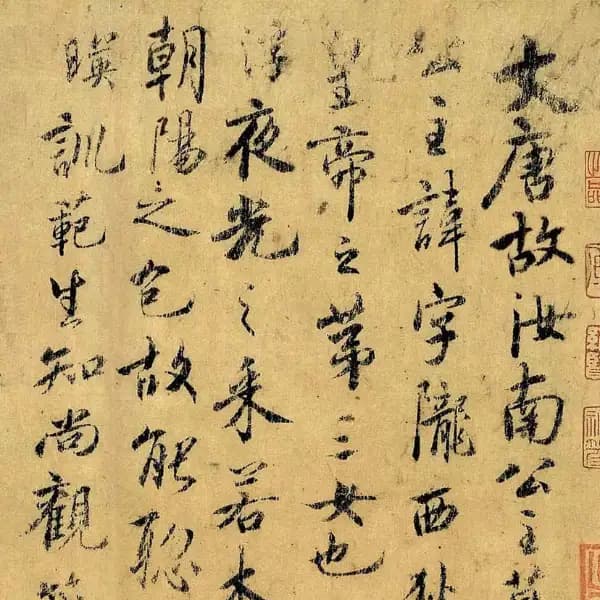 大唐故汝南公主墓
公主諱字隴西狄
皇帝之第三女也
淳夜光之采若木
朝陽之色故能聰
暎訓範生知尚觀